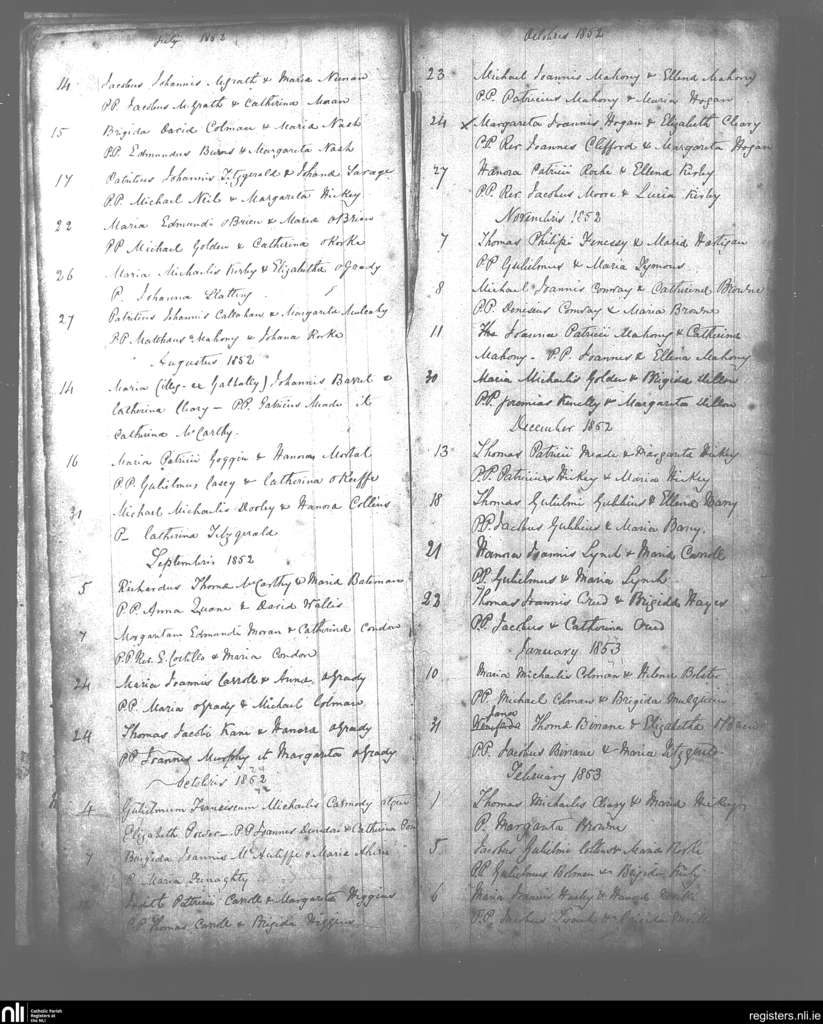 July 1852
14 Jacobus Johannis McGrath & Maria Noonan
P.P. Jacobus McGrath & Catherina Moran
15 Brigida David Colman & Maria Nash
P.P. Edmundus Burns & Margarita Nash
17 Patritius Johannis Fitzgerald & Johana Savage
P.P. Michael Neil & Margarita Hickey
22 Maria Edmundi OBrien & Maria OBrien
PP Michael Golden & Catherina oRorke
26 Maria Michaelis Kirby & Elizabetha oGrady
P. Johanna Slattery
27 Patritius Johannis Callahan & Margarita Mulcahy
P.P. Matthaus Mahony & Johana Rorke
Augustus 1852
14 Maria (illeg- ex Galbally) Johannis Barret &
Catherina Cleary — P.P. Patricius Meade et
Catherina McCarthy.
16 Maria Patricii Goggin & Hanora
P.P. Gulielmus Casey & Catherina oKeeffe
31 Michael Michaelis Dooley & Hanora Collins
P— Catherina Fitzgerald
Septembris 1852
5 Richardus Thoma McCarthy & Maria Bateman
P.P. Anna Quane & David Wallis
7 Morgantam Edmundi Moran & Catherina Condon
P.P. Rev. E. Costello & Maria Condon
24 Maria Joannis Carroll & Anna oGrady
P.P. Maria oGrady & Michael Colman
24 Thomas Jacobi Kane & Hanora oGrady
PP Joannis Murphy et Margarita oGrady
Octobris 1852
4 Gulielmum Franciscum Michaelis Carmody atque
Elizabeth Power — P.P. Joannes & Catherina
7 Brigida Joannis McAuliffe & Maria Ahern
P. Maria
Judith Patricii Carroll & Margarita Higgins
P.P. Thomas Carroll & Brigida Higgins
Octobris 1852
23 Michael Joannis Mahony & Ellena Mahony
P.P. Patricius Mahony & Maria Hogan
24 x Margareta Joannis Hogan & Elizabeth Cleary
P.P. Rev. Joannes Clifford & Margarita Hogan
27 Hanora Patricii Roche & Ellena Kirby
P.P. Rev. Jacobus Moore & Lucia Kirby
Novembris 1852
7 Thomas Philipi Fenessy & Maria Hartigan
P.P. Gulielmus & Maria Symons
8 Michael Joannis Conway & Catherina Browne
P.P. Denesius Conway & Maria Browne
11 Joanna Patricii Mahony & Catherina
Mahony — P.P. Joannes & Ellena Mahony
30 Maria Michaelis Golden & Brigida
P.P. Jeremias & Margarita
December 1852
13 Thomas Patricii Meade & Margarita Hickey
P.P. Patricius Hickey & Maria Hickey
18 Thomas Gulielmi Gubbins & Ellena Barry
P.P. Jacobus Gubbins & Maria Barry.
21 Hanora Joannis Lynch & Maria Carroll
PP. Gulielmus & Maria Lynch
22 Thomas Joannis Creed & Brigida Hayes
P.P. Jacobus & Catherina Creed
January 1853
10 Maria Michaelis Colman & Helena Bolster
P.P. Michael Colman & Brigida Mulqueen
31 Thoma Binane & Elizabetha OBrien
P.P. Jacobus Binane & Maria
February 1853
1 Thomas Michaelis Cleary & Maria Hickey
P. Margarita Browne
5 Jacobus Gulielmi & Maria Rorke
P.P. Gulielmus & Brigida Kirby
6 Maria Joannis & Hanora
P.P. Jacobus & Brigida
nli
Catholic Parish
Registers at
the NLI
registers.nli.ie